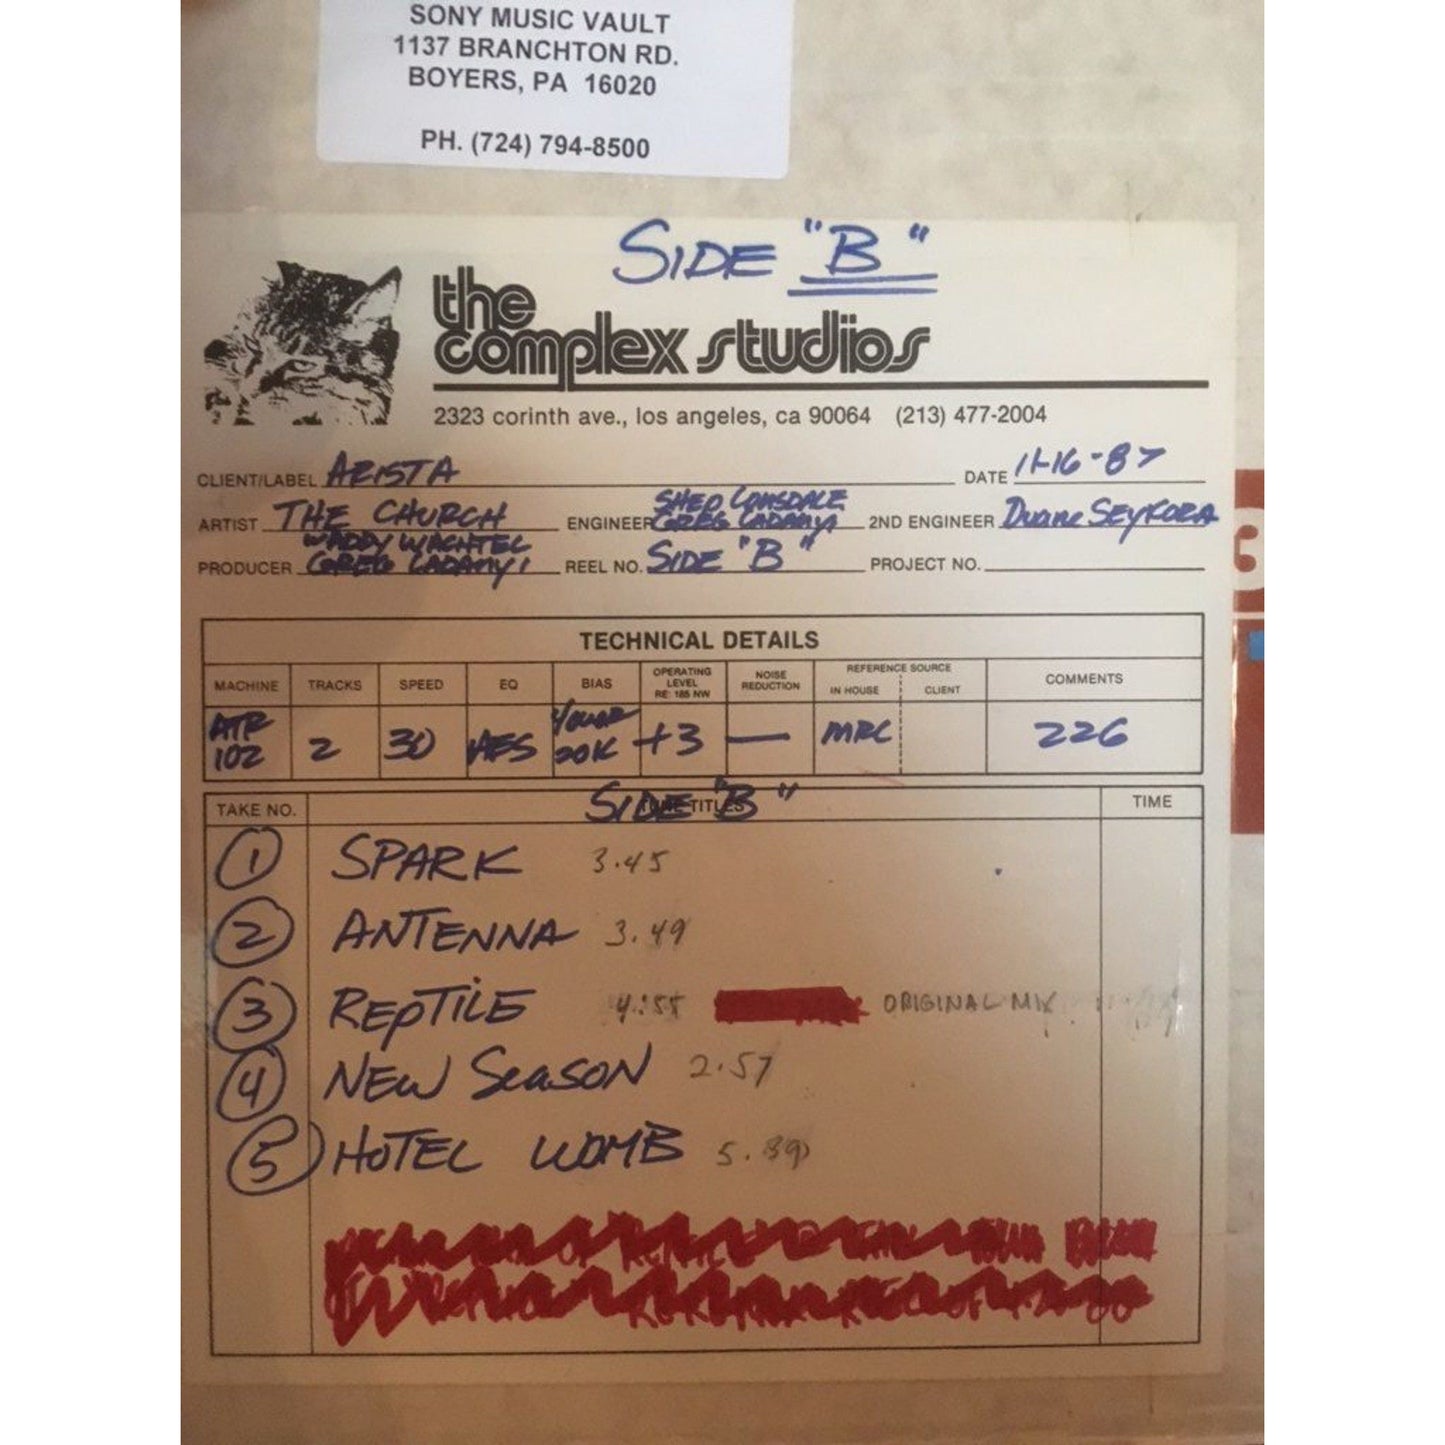 SONY MUSIC VAULT
1137 BRANCHTON RD.
BOYERS, PA 16020
PH. (724) 794-8500
SIDE "B"
the
complex studios
2323 corinth ave., los angeles, ca 90064 (213) 477-2004
CLIENT/LABEL ARISTA DATE 11-16-87
SHEP LONSDALE
ARTIST THE CHURCH ENGINEER GREG LADANYI 2ND ENGINEER Duane SEYKORA
WADDY WACHTEL
PRODUCER GREG LADANYI REEL NO. SIDE "B" PROJECT NO.
TECHNICAL DETAILS
MACHINE TRACKS SPEED EQ BIAS OPERATING LEVEL RE: 185 NW NOISE REDUCTION REFERENCE SOURCE IN HOUSE CLIENT COMMENTS
ATR 102 2 30 AES 20K +3 — MRL 226
TAKE NO. SIDE "B" TUNE TITLES TIME
1 SPARK 3.45
2 ANTENNA 3.49
3 REPTILE 4:55 ORIGINAL MIX
4 NEW SEASON 2.57
5 HOTEL WOMB 5.39